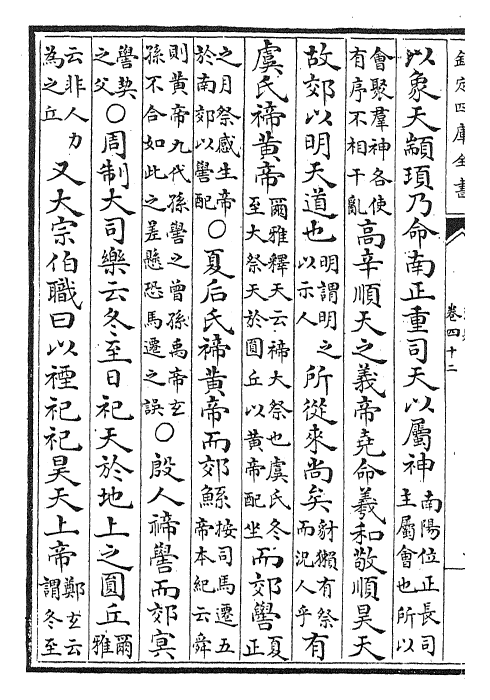 欽定四庫全書
卷四十二
以象天顓頊乃命南正重司天以屬神南陽位正長司主屬會也所以
會聚羣神各使有序不相干亂高辛順天之義帝堯命羲和敬順昊天
故郊以明天道也明謂明之以示人所從來尚矣豺獺有祭而況人乎有
虞氏禘黃帝爾雅釋天云禘大祭也虞氏冬至大祭天於圓丘以黃帝配坐而郊嚳夏正
之月祭感生帝於南郊以嚳配○夏后氏禘黃帝而郊鯀按司馬遷五帝本紀云舜
則黃帝九代孫嚳之曾孫禹帝玄孫不合如此之差懸恐馬遷之誤○殷人禘嚳而郊冥
嚳契之父○周制大司樂云冬至日祀天於地上之圓丘爾雅
云非人力為之丘又大宗伯職曰以禋祀祀昊天上帝鄭玄云謂冬至